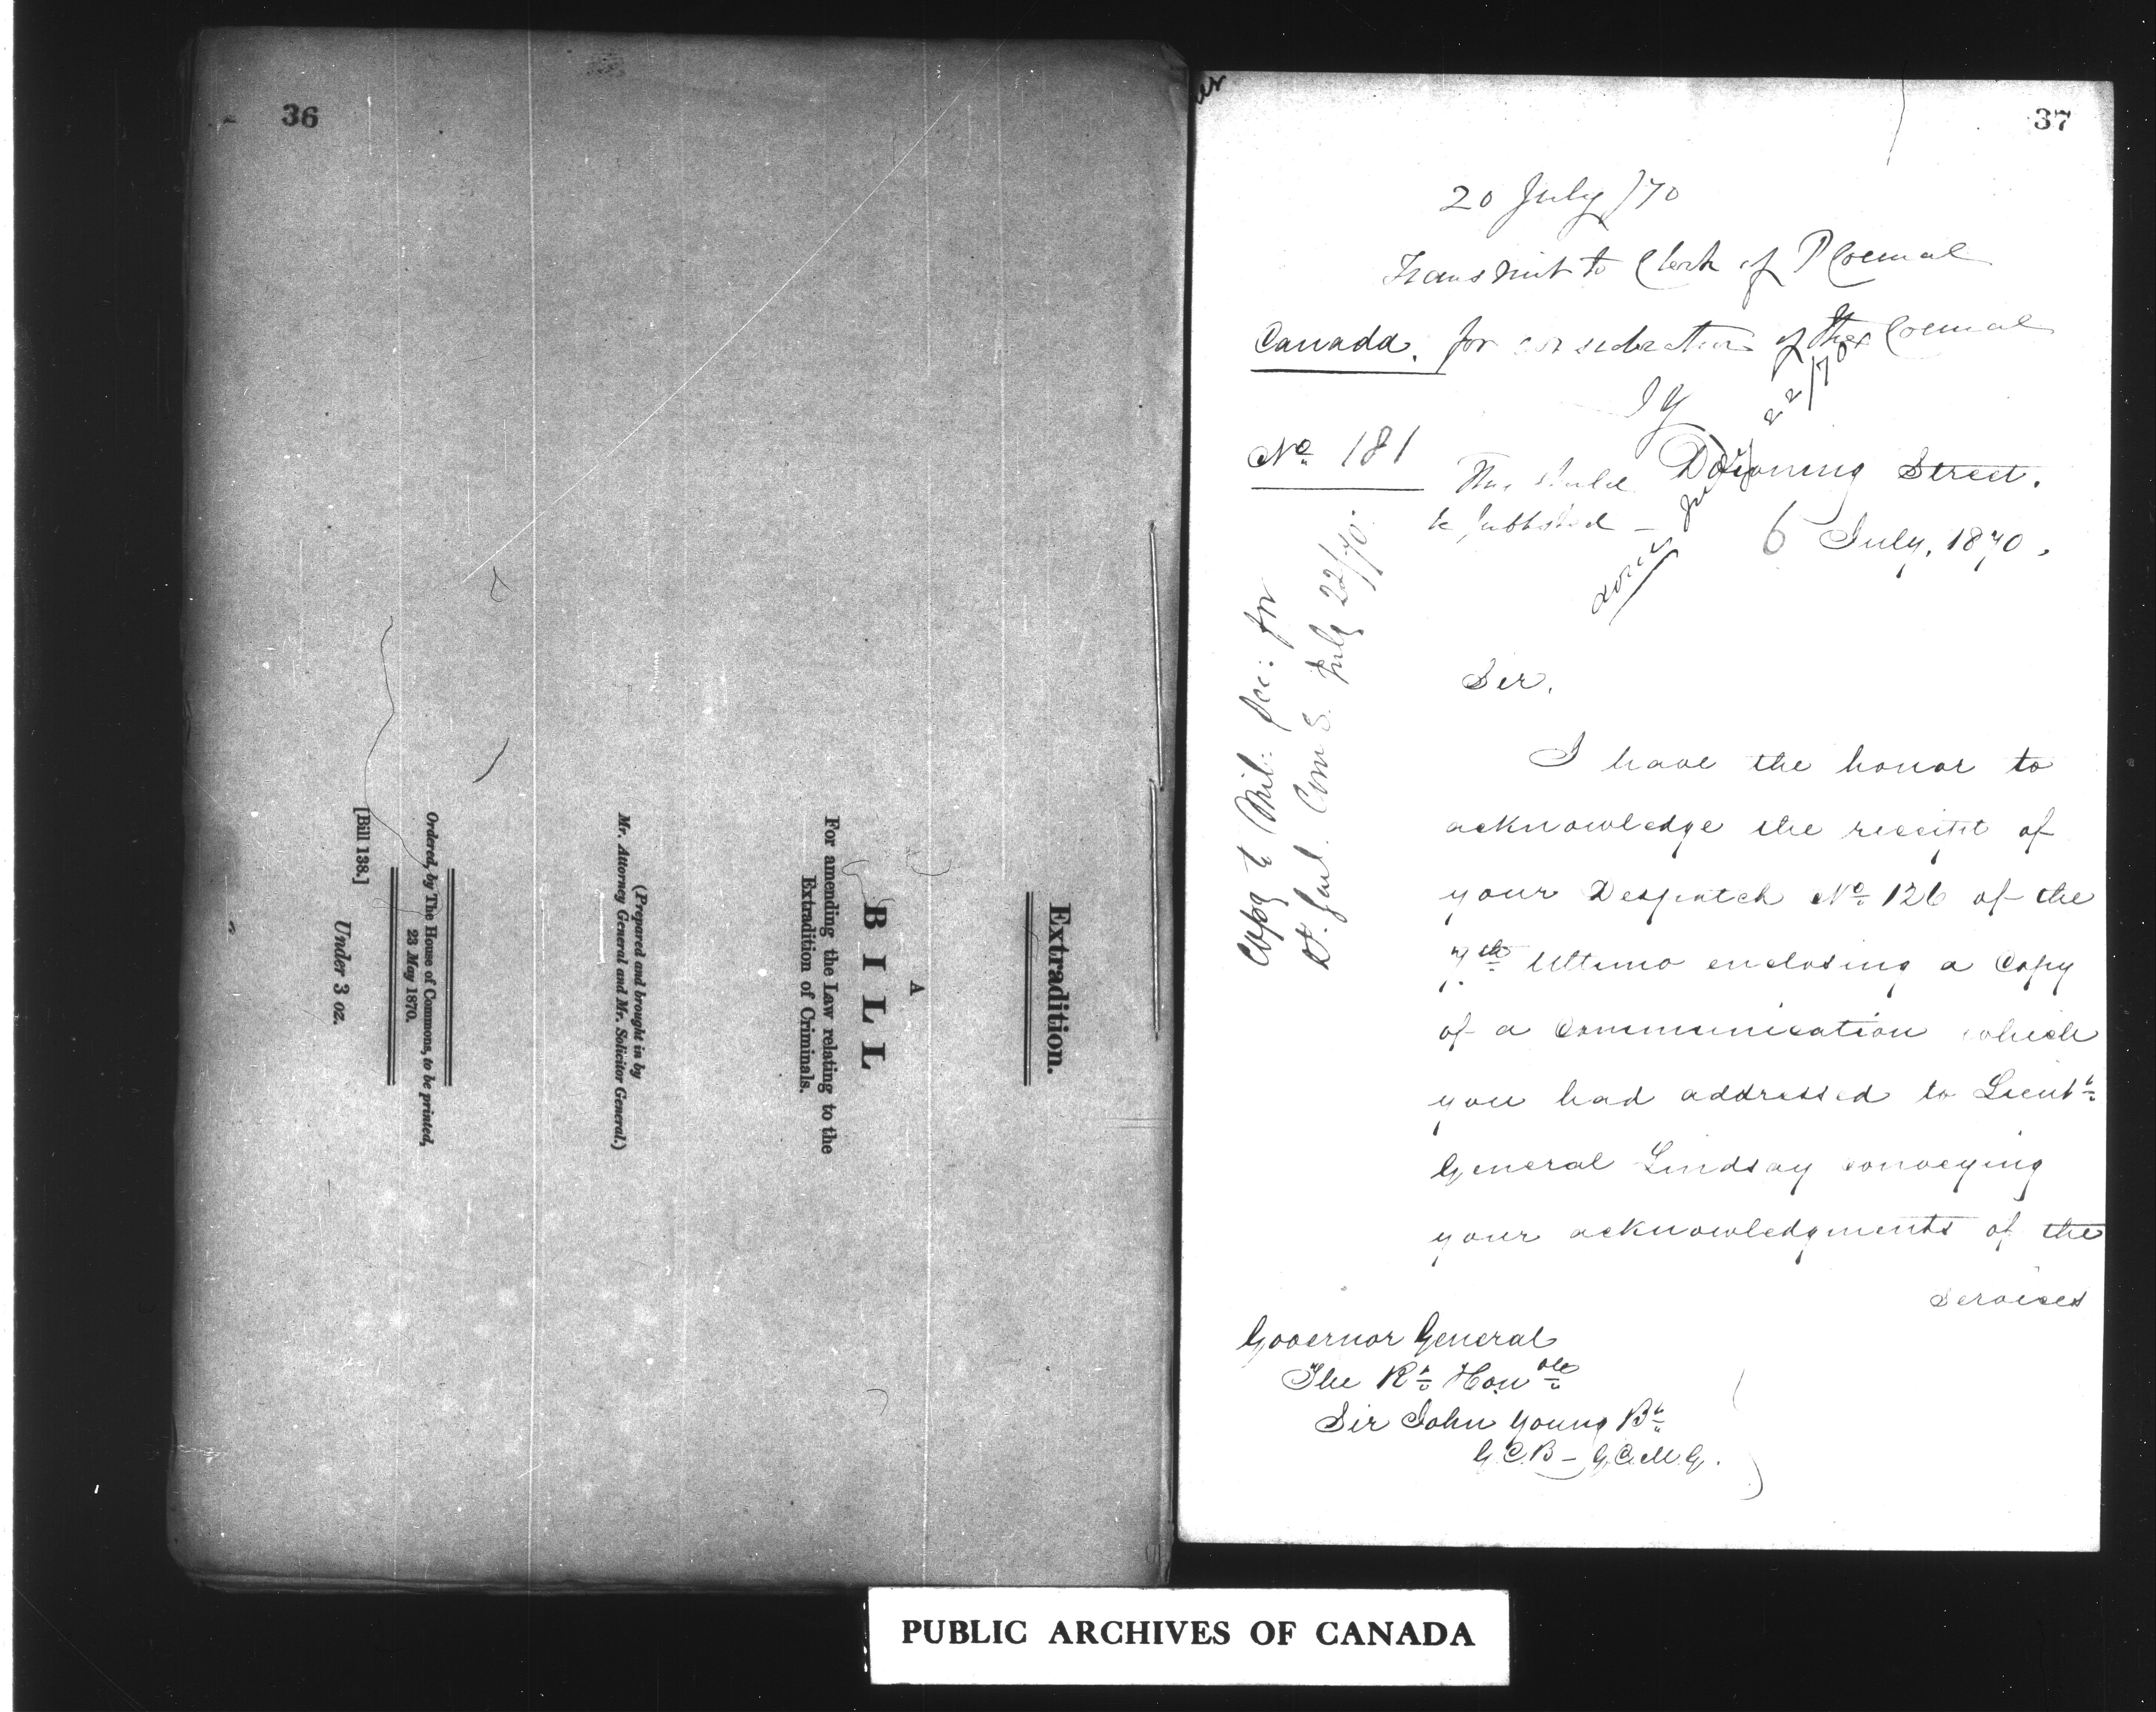 36
Extradition.
A
BILL
For amending the Law relating to the
Extradition of Criminals.
(Prepared and brought in by
Mr. Attorney General and Mr. Solicitor General.)
Ordered, by The House of Commons, to be printed,
23 May 1870.
[Bill 138.]
Under 3 oz.
37
20 July /70
Transmit to Clerk of P Council
for consideration of the Council
JY
Canada.
No. 181
be published —
done July 22/70
Downing Street.
6 July, 1870.
Copy to Mil: Sec: for
July 22/70.
Sir,
I have the honor to
acknowledge the receipt of
your Despatch No. 126 of the
7th Ultimo enclosing a Copy
of a Communication which
you had addressed to Lieut.
General Lindsay conveying
your acknowledgments of the
services
Governor General
The Rt. Honble
Sir John Young Bt.
G.C.B – G.C.M.G.
PUBLIC ARCHIVES OF CANADA